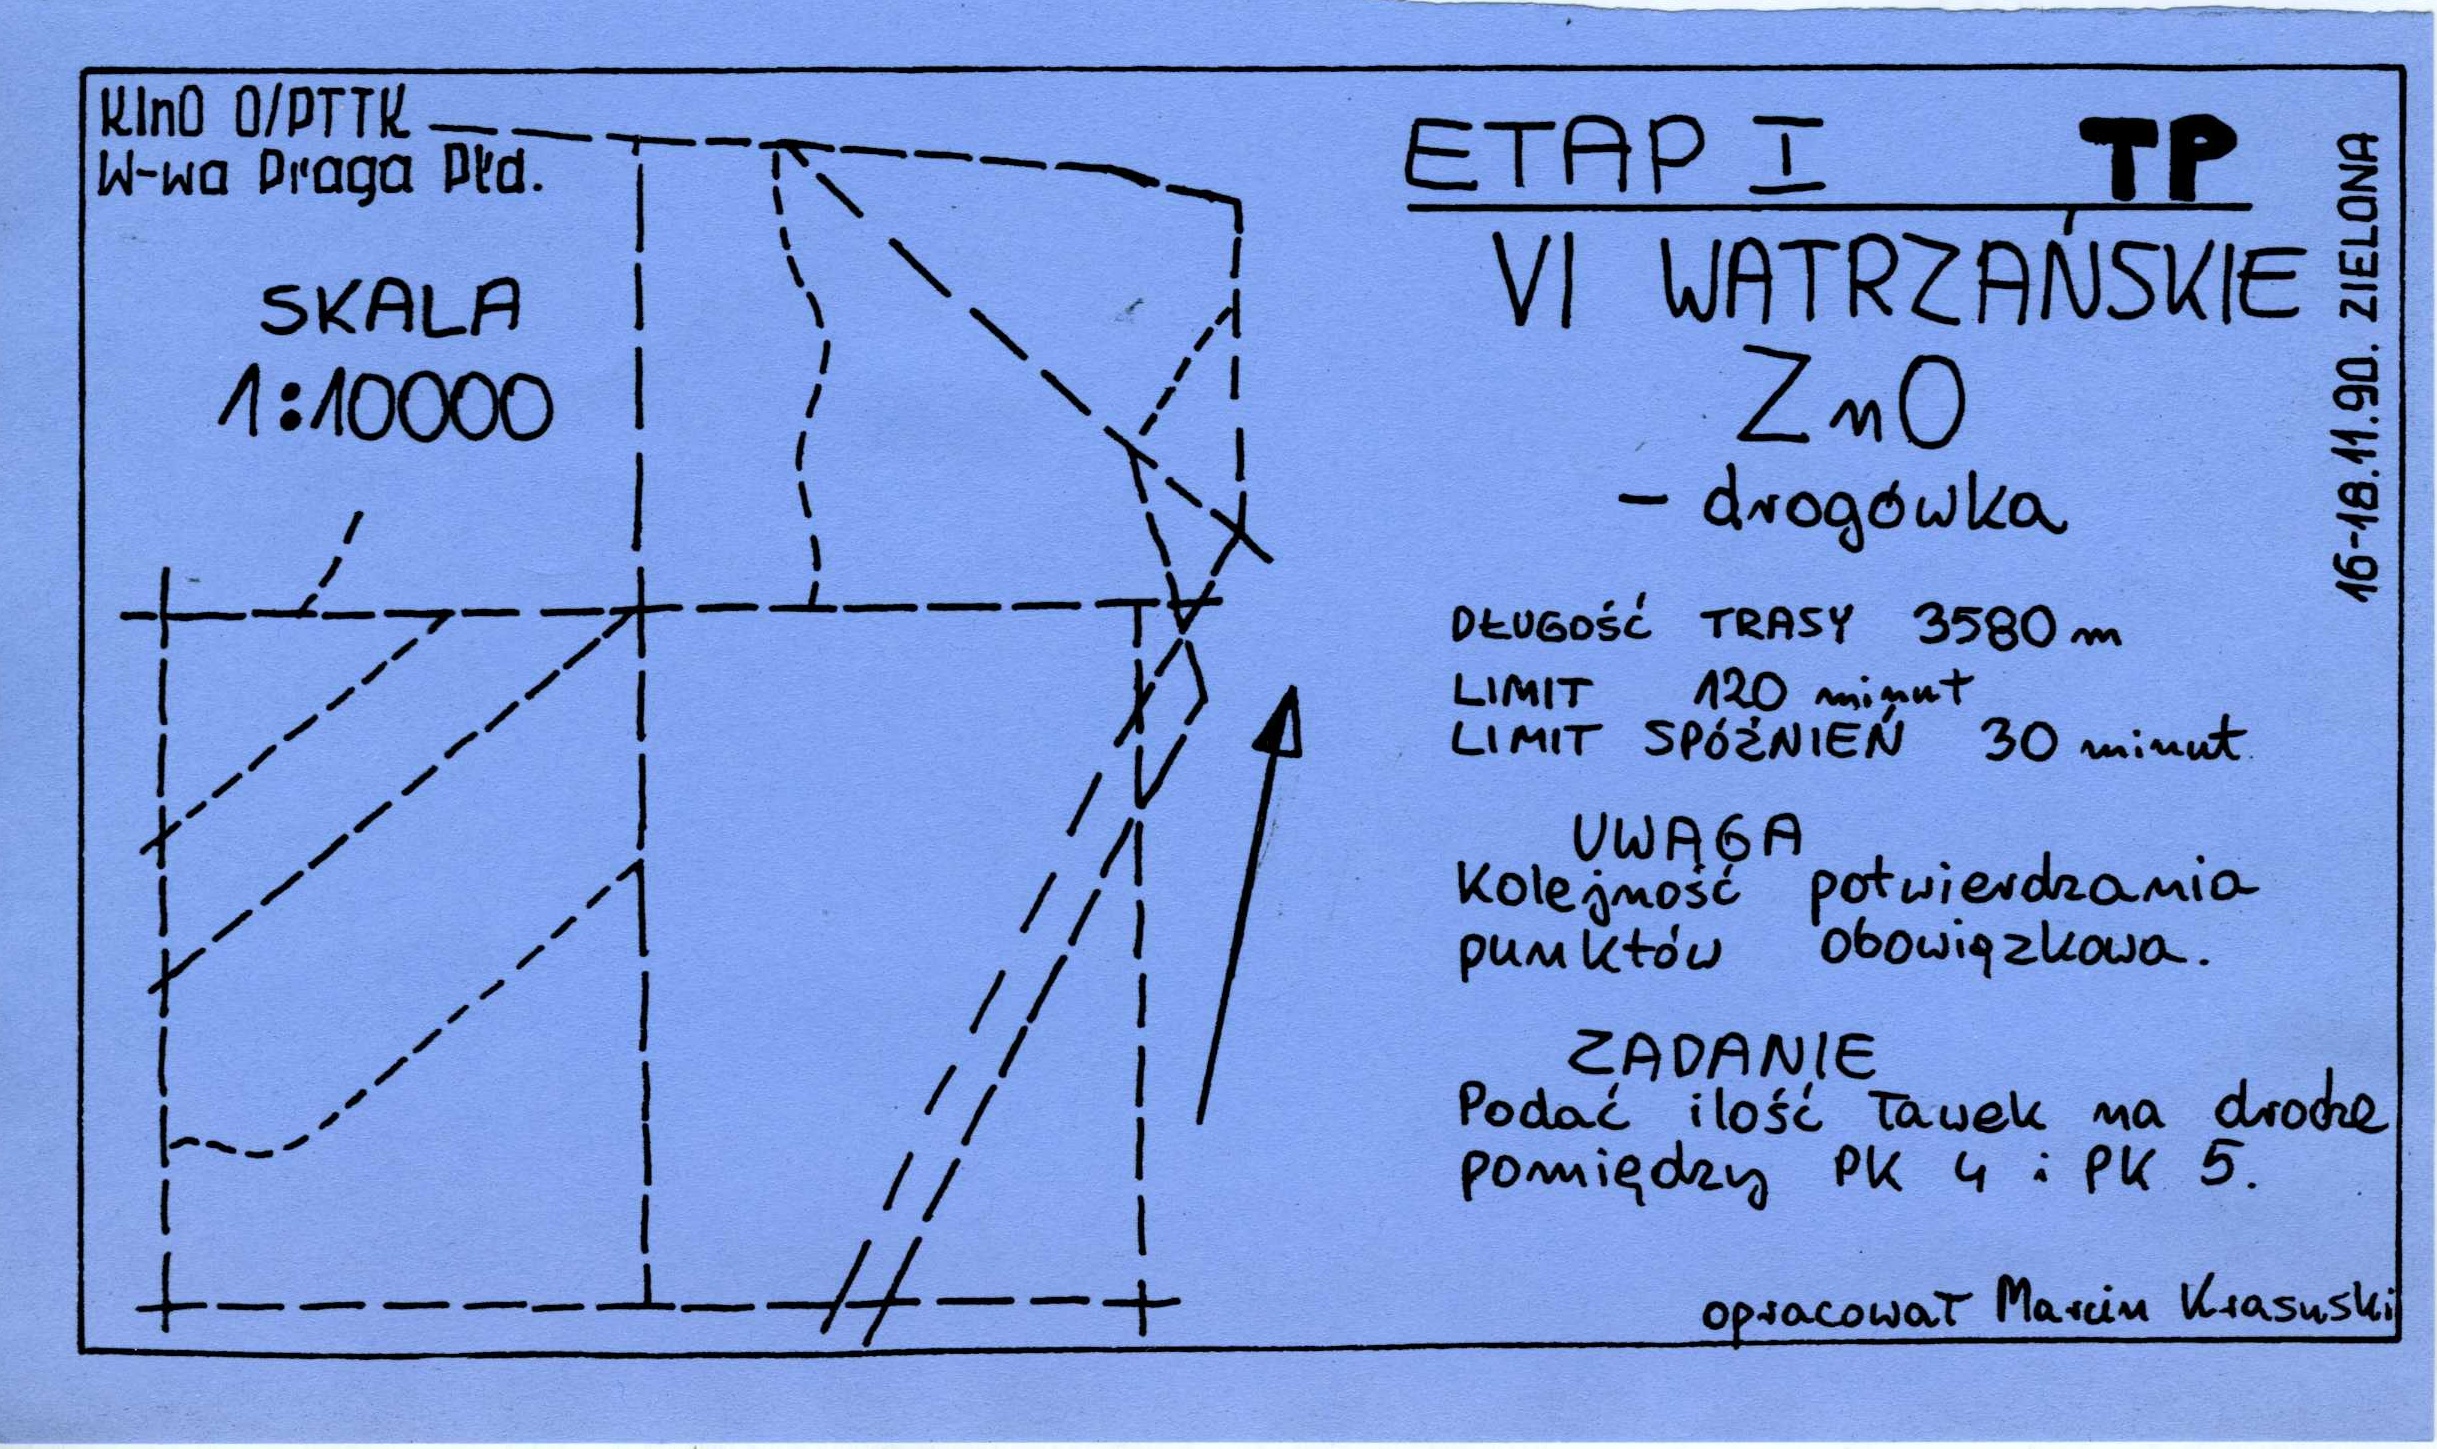 KInO O/PTTK
W-wa Praga Płd.
SKALA
1:10000
ETAP I TP
VI WATRZAŃSKIE
ZnO
- drogówka
16-18.11.90. ZIELONA
DŁUGOŚĆ TRASY 3580 m
LIMIT 120 minut
LIMIT SPÓŹNIEŃ 30 minut
UWAGA
Kolejność potwierdzania
punktów obowiązkowa.
ZADANIE
Podać ilość ławek na drodze
pomiędzy PK 4 i PK 5.
opracował Marcin Krasuski